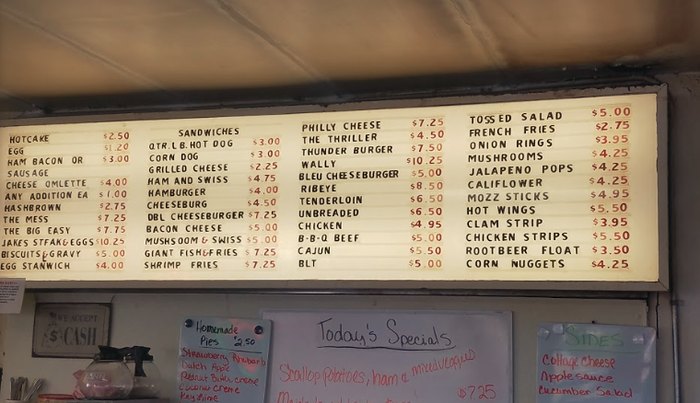 HOTCAKE $2.50
EGG $1.20
HAM BACON OR $3.00
SAUSAGE
CHEESE OMLETTE $4.00
ANY ADDITION EA $1.00
HASHBROWN $2.75
THE MESS $7.25
THE BIG EASY $7.75
JAKES STEAK&EGGS $10.25
BISCUITS&GRAVY $5.00
EGG STANWICH $4.00
SANDWICHES
QTR. LB. HOT DOG $3.00
CORN DOG $3.00
GRILLED CHEESE $2.25
HAM AND SWISS $4.75
HAMBURGER $4.00
CHEESEBURG $4.50
DBL CHEESEBURGER $7.25
BACON CHEESE $5.00
MUSHSOOM & SWISS $5.00
GIANT FISH&FRIES $7.25
SHRIMP FRIES $7.25
PHILLY CHEESE $7.25
THE THRILLER $4.50
THUNDER BURGER $7.50
WALLY $10.25
BLEU CHEESEBURGER $5.00
RIBEYE $8.50
TENDERLOIN $6.50
UNBREADED $6.50
CHICKEN $4.95
B-B-Q BEEF $5.00
CAJUN $5.50
BLT $5.00
TOSSED SALAD $5.00
FRENCH FRIES $2.75
ONION RINGS $3.95
MUSHROOMS $4.25
JALAPENO POPS $4.25
CALIFLOWER $4.25
MOZZ STICKS $4.95
HOT WINGS $5.50
CLAM STRIP $3.95
CHICKEN STRIPS $5.50
ROOTBEER FLOAT $3.50
CORN NUGGETS $4.25
WE ACCEPT
$ CASH
Homemade
Pies $2.50
Strawberry Rhubarb
Dutch Apple
Peanut Butter creme
Coconut Creme
Key Lime
Today's Specials
Scallop potatoes, ham & mixed veggies
$7.25
SIDES
Cottage cheese
Applesauce
Cucumber Salad